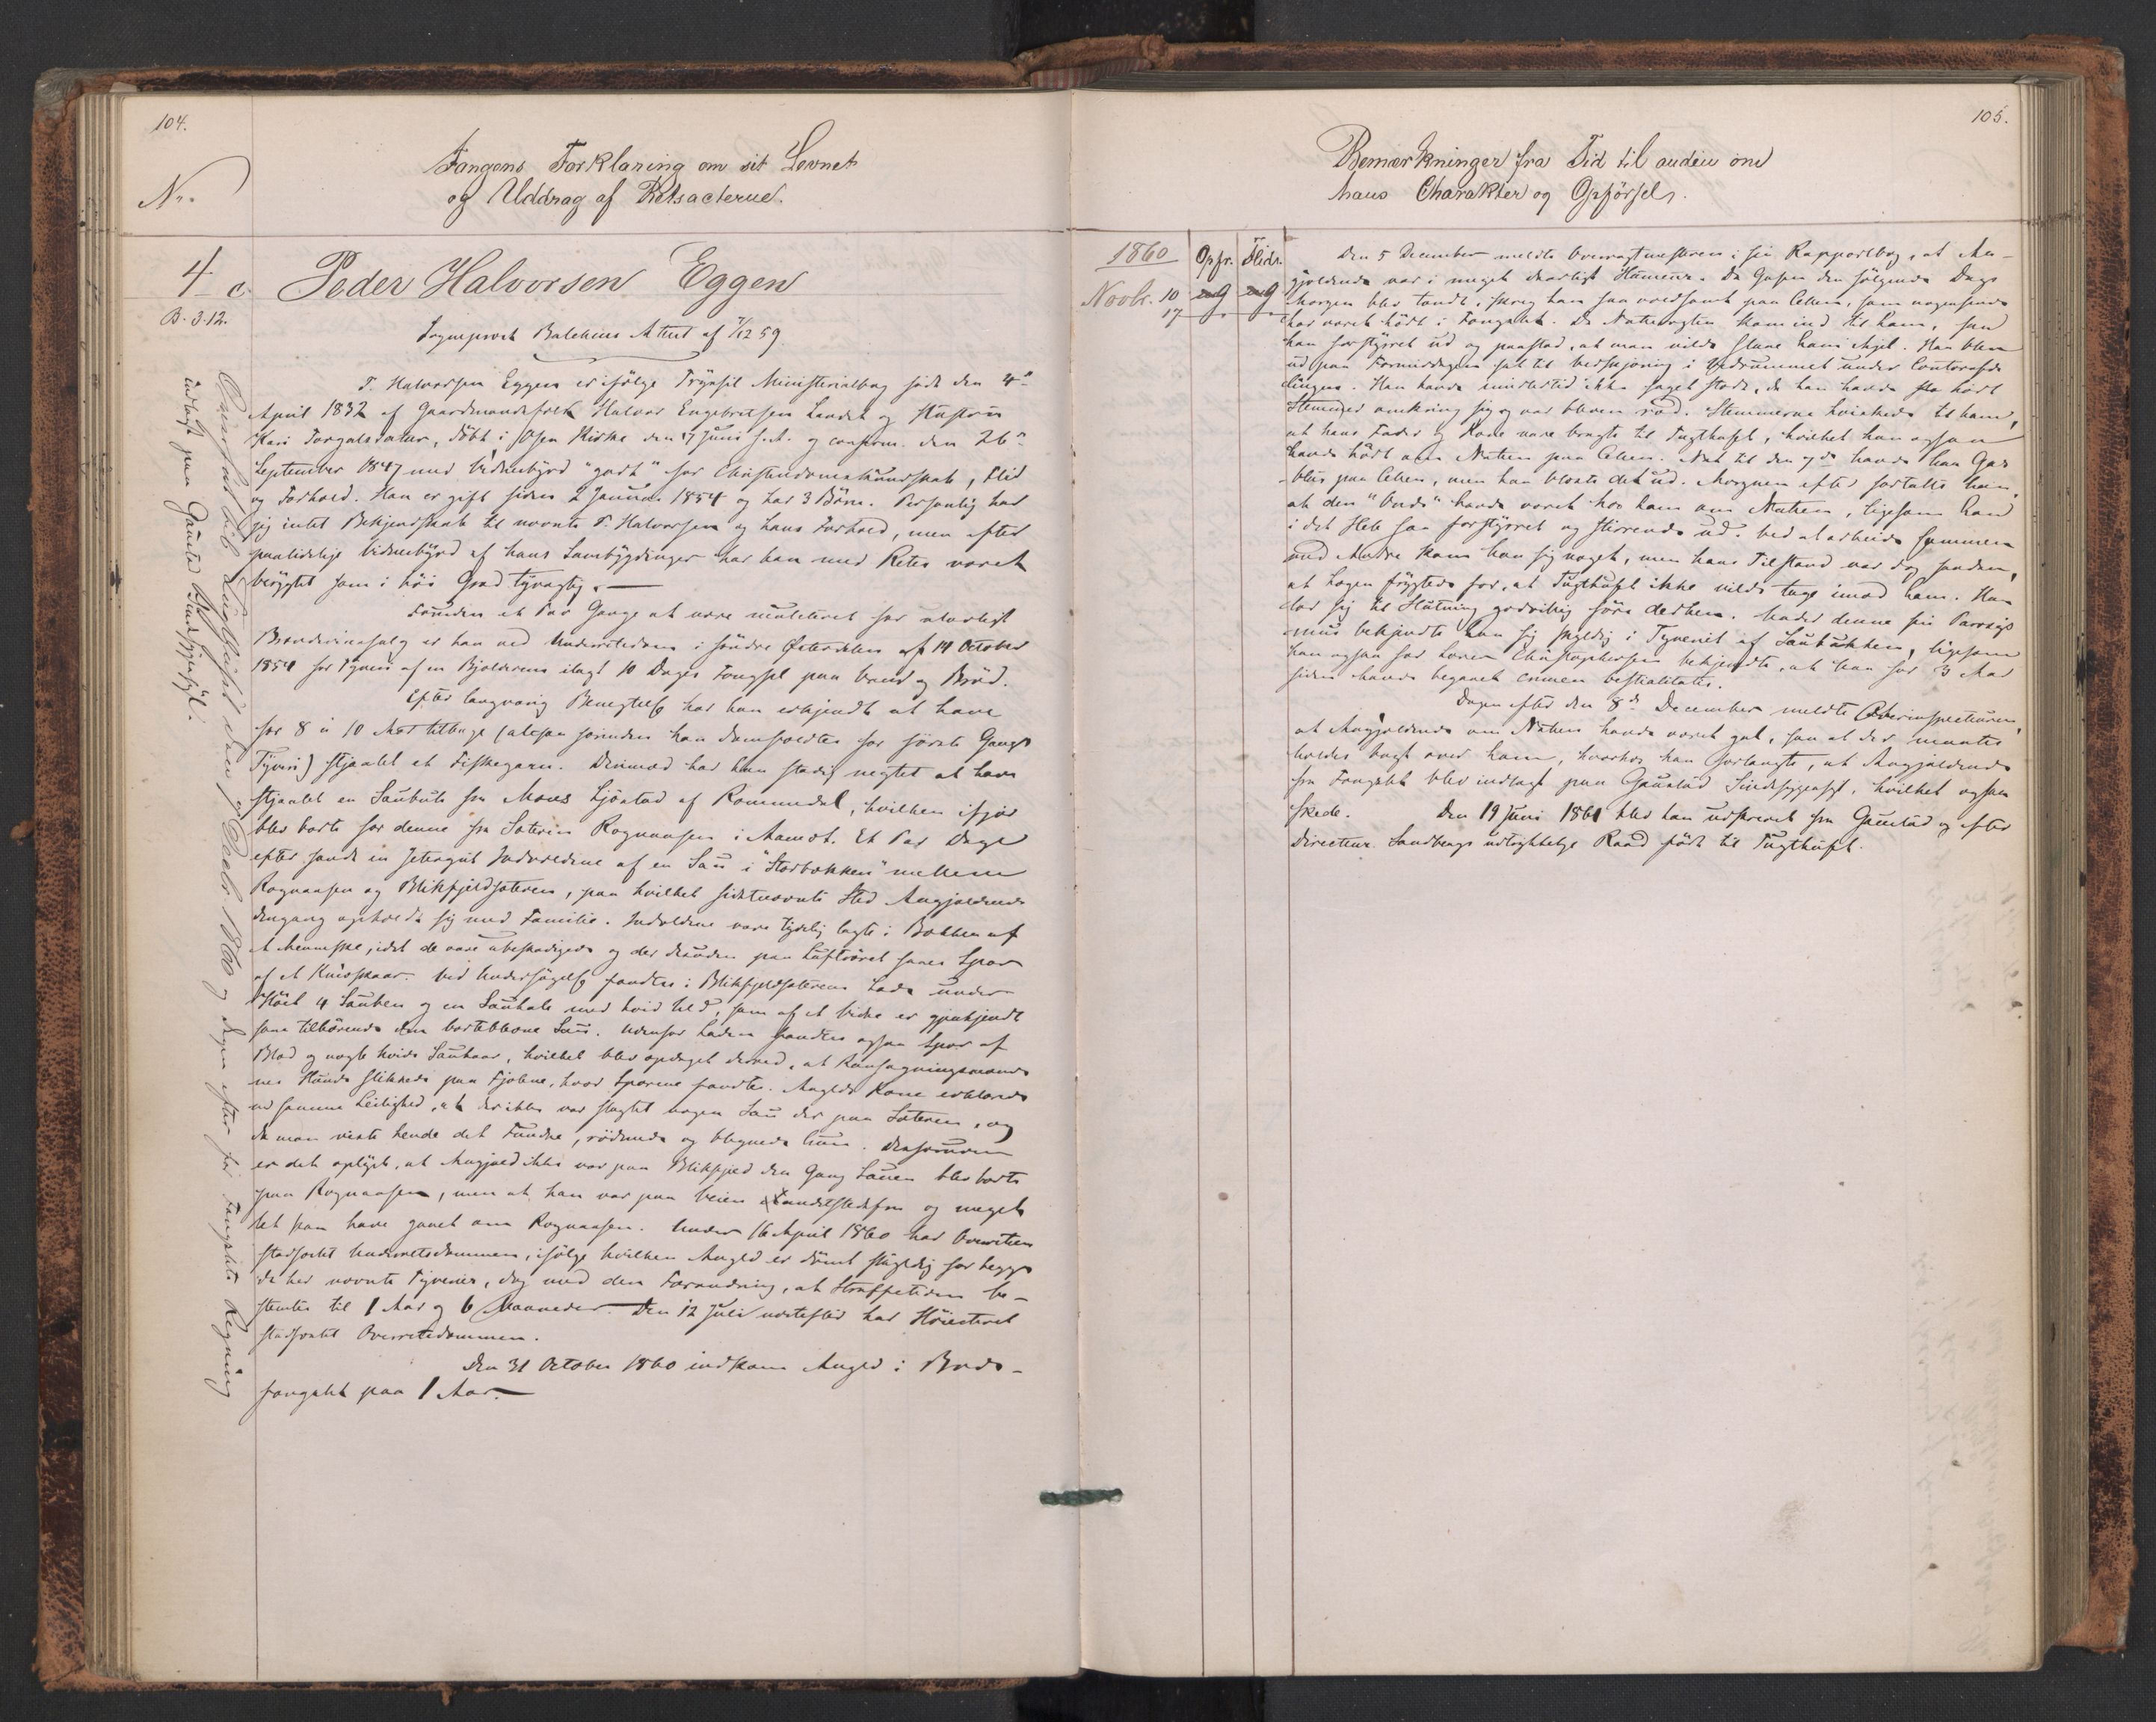 104.
Fangens Forklaring om sit Levnet
og Uddrag af Retsacterne.
No.
4 c.
B. 3.12.
Peder Halvorsen Eggen
Sogneprest Balchens Attest af 7/12 59.
P. Halvorsen Eggen er ifølge Trysil Ministerialbog født den 4de
April 1832 af Gaardmandsfolk Halvor Engebretsen Landet og Hustru
Kari Torgalsdatter, døbt i Osen Kirke den 17 Juni s.A. og confirm. den 26de
September 1847 med Vidnesbyrd "godt" for Christendomskundskab, Flid
og Forhold. Han er gift siden 2 Januar 1854 og har 3 Børn. Personlig har
jeg intet Bekjendskab til nævnte P. Halvorsen og hans Forhold, men efter
paalidelige Vidnesbyrd af hans Sambygdinger har han med Rette været
berygtet som i høi Grad tyvagtig.
Foruden et Par Gange at være mulcteret for ulovligt
Brændeviinssalg er han ved Underretsdom i søndre Østerdalen af 14 October
1854 for Tyveri af en Bjelderem ilagt 10 Dages Fængsel paa Vand og Brød.
Efter langvarig Benegtelse har han erkjendt at have
for 8 à 10 Aar tilbage (altsaa forinden han domfældtes for første Gangs
Tyveri) stjaalet et Fiskegarn. Derimod har han stadig negtet at have
stjaalet en Saubuk fra Mons Ljøstad af Rommedal, hvilken ifjor
blev borte for denne fra Sæteren Rognaasen i Aamot. Et Par Dage
efter fandt en Jetergut Indvoldene af en Sau i "Storbækken" mellem
Rognaasen og Blikfjeldsæteren, paa hvilket sidstnævnte Sted Angjældende
dengang opholdt sig med Familie. Indvoldene vare tydelig lagte i Bækken af
et Menneske, idet de vare ubeskadigede og der desuden paa Luftrøret saaes Spor
af et Knivskaar. Ved Undersøgelse fandtes i Blikfjeldsæterens Lade under
Høet 4 Sauben og en Sauhale med hvid Uld, som af et Vidne er gjenkjendt
som tilhørende den bortblevne Sau. Udenfor Laden fandtes ogsaa Spor af
Blod og nogle hvide Sauhaar, hvilket blev opdaget derved, at Ransagningsmænde-
nes Hunde slikkede paa Fjølene, hvor Sporene fandtes. Anglds Kone erklærede
ved samme Leilighed, at der ikke var slagtet nogen Sau der paa Sæteren, og
da man viste hende det Fundne, rødmede og blegnede hun. Desforuden
er det oplyst, at Angjæld ikke var paa Blikfjeld den Gang Sauen blev borte
paa Rognaasen, men at han var paa Veien Landetstedsfra og meget
let kan have gaaet om Rognaasen. Under 16 April 1860 har Overretten
stadfæstet Underretsdommen, ifølge hvilken Angld er dømt skyldig for begge
de her nævnte Tyverier, dog med den Forandring, at Straffetiden be-
stemtes til 1 Aar og 6 Maaneder. Den 12 Juli næstefter har Høiesteret
stadfæstet Overretsdommen.
Den 31 October 1860 indkom Angld i Bods-
fængslet paa 1 Aar.
Overført til Tugthuset den 7de Decbr. 1860 og Dagen efter for Fængslets Regning
indlagt paa Gaustad Sindssygeasyl.
105.
Bemærkninger fra Tid til anden om
hans Charakter og Opførsel.
1860 Opfr. Flid.
Novbr. 10 mg mg
17
Den 5 December meldte Overvagtmesteren i sin Rapportbog, at An-
gjældende var i meget daarligt Humeur. Da Gasen den følgende Dags
Morgen blev tændt, skreg han saa voldsomt paa Cellen, som nogensinde
har været hørt i Fængslet. Da Natvagten kom ind til ham, saa
han forstyrret ud og paastod, at man vilde slaae ham ihjel. Han blev
ud paa Formiddagen sat til Vedskjæring i Vedrummet under Contorafde-
lingen. Han havde imidlertid ikke faget sове, da han havde hørt
Stemmer omkring sig og var bleven ræd. Stemmerne hviskede til ham,
at hans Fader og Kone vare bragte til Tugthuset, hvilket han ogsaa
havde hørt om Natten paa Cellen. Nat til den 7de havde han Gas-
blus paa Cellen, men han blæste det ud. Morgenen efter fortalte han,
at den "Onde" havde været hos ham om Natten, ligesom han
i det Hele saa forstyrret og stirrende ud. Ved at arbeide sammen
med Andre kom han sig noget, men hans Tilstand var dog saadan,
at Lægen frygtede for, at Tugthuset ikke vilde tage imod ham. Han
lod sig til Slutning godvillig føre derhen. Under denne sin Paroxys-
mus bekjendte han sig skyldig i Tyveriet af Saubukken, ligesom
han ogsaa for Lærer Christophersen bekjendte, at han for 3 Aar
siden havde begaaet crimen bestialitatis.
Dagen efter den 8de December meldte Overinspecteuren,
at Angjældende om Natten havde været gal, saa at der maatte
holdes Vagt over ham, hvorhos han forlangte, at Angjældende
fra Fængslet blev indlagt paa Gaustad Sindssygeasyl, hvilket ogsaa
skede. Den 19 Juni 1861 blev han udskrevet fra Gaustad og efter
Directeur Sandbergs udtrykkelige Raad ført til Tugthuset.